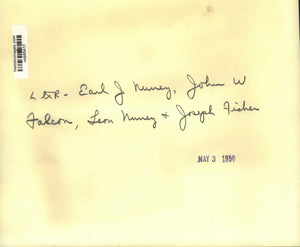 L to R - Earl J Nunez, John W.
Falcon, Leon Nunez & Joseph Fisher
MAY 3 1950